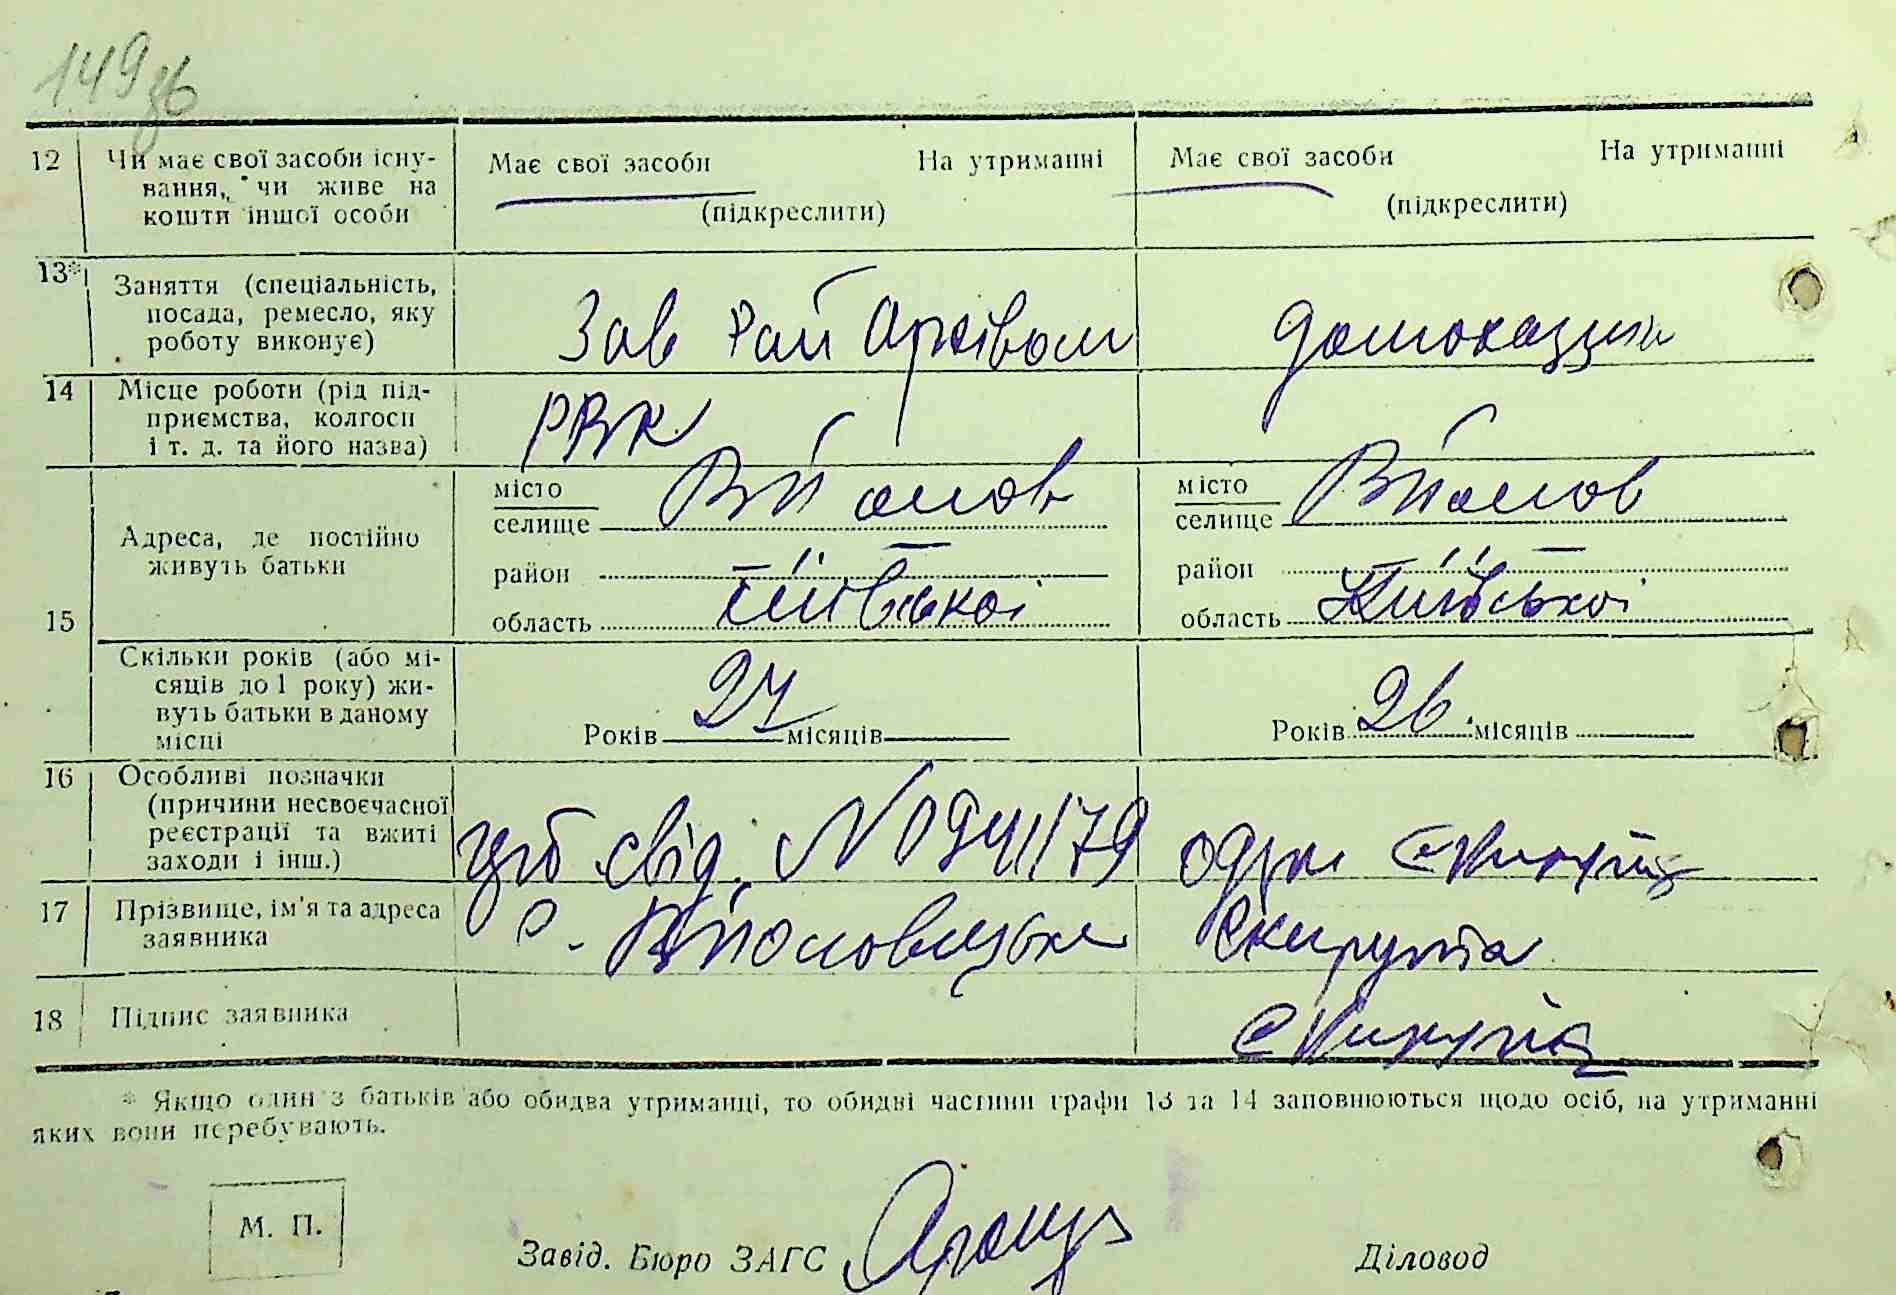 149зв
12 Чи має свої засоби існу-
вання, чи живе на
кошти іншої особи
Має свої засоби На утриманні
(підкреслити)
Має свої засоби На утриманні
(підкреслити)
13* Заняття (спеціальність,
посада, ремесло, яку
роботу виконує)
Зав Рай Архівом
домохазяйка
14 Місце роботи (рід під-
приємства, колгосп
і т. д. та його назва)
РВК
15
Адреса, де постійно
живуть батьки
місто
селище
район
область Київської
місто
селище
район
область Київської
Скільки років (або мі-
сяців до 1 року) жи-
вуть батьки в даному
місці
Років 27 місяців
Років 26 місяців
16 Особливі позначки
(причини несвоєчасної
реєстрації та вжиті
заходи і інш.)
свід. N 0941179
17 Прізвище, ім'я та адреса
заявника
18 Підпис заявника
* Якщо один з батьків або обидва утриманці, то обидві частини графи 13 та 14 заповнюються щодо осіб, на утриманні
яких вони перебувають.
М. П.
Завід. Бюро ЗАГС
Діловод